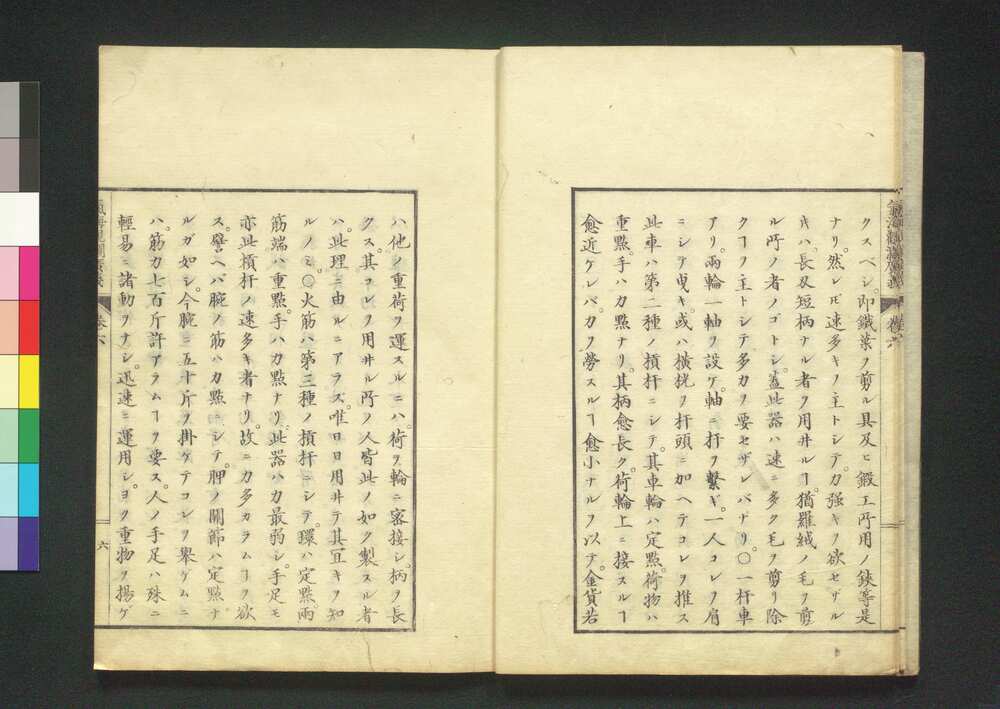 クスベシ。即鐵葉ヲ剪ル具及ヒ鍛工所用ノ鋏等是
ナリ。然レ𪜈速多キヲ主トシテ。力強キヲ欲セザル
𪜈ハ。長及短柄ナル者ヲ用井ルヿ。猶羅絨ノ毛ヲ剪
ル所ノ者ノゴトシ。蓋此器ハ速ニ多ク毛ヲ剪リ除
クヿヲ主トシテ多力ヲ要セザレバナリ○一杆車
アリ。兩輪一軸ヲ設ケ。軸ニ杆ヲ繫ギ。一人コレヲ肩
ニシテ曳キ。或ハ横挄ヲ杆頭ニ加ヘテコレヲ推ス
此車ハ第二種ノ槓杆ニシテ。其車輪ハ定點。荷物ハ
重點。手ハ力點ナリ。其柄愈長ク。荷輪上ニ接スルヿ
愈近ケレバ。力ヲ勞スルヿ愈小ナルヲ以テ。金貨若
ハ他ノ重荷ヲ運スルニハ。荷ヲ輪ニ密接シ。柄ヲ長
クス。其コレヲ用井ル所ノ人皆此ノ如ク製スル者
ハ。此理ニ由ルニアラズ。唯日日用井テ其冝キヲ知
ルノミ○火筋ハ第三種ノ槓杆ニシテ。環ハ定點。兩
筋端ハ重點。手ハ力點ナリ。此器ハ力最弱シ。手足モ
亦此槓杆ノ速多キ者ナリ。故ニ力多カラムヿヲ欲
ス。譬ヘバ腕ノ筋ハ力點ニシテ。胛ノ關節ハ定點ナ
ルガ如シ。今腕ニ五十斤ヲ掛ケテコレヲ擧ゲムニ
ハ。筋力七百斤許アラムヿヲ要ス。人ノ手足ハ殊ニ
輕易ニ諸動ヲナシ。迅速ニ運用シ。ヨク重物ヲ揚ゲ
六